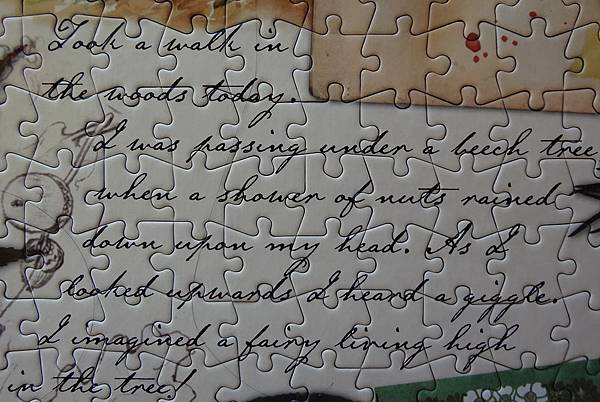 Took a walk in
the woods today.
I was passing under a beech tree
when a shower of nuts rained
down upon my head. As I
looked upwards I heard a giggle.
I imagined a fairy living high
in the tree!